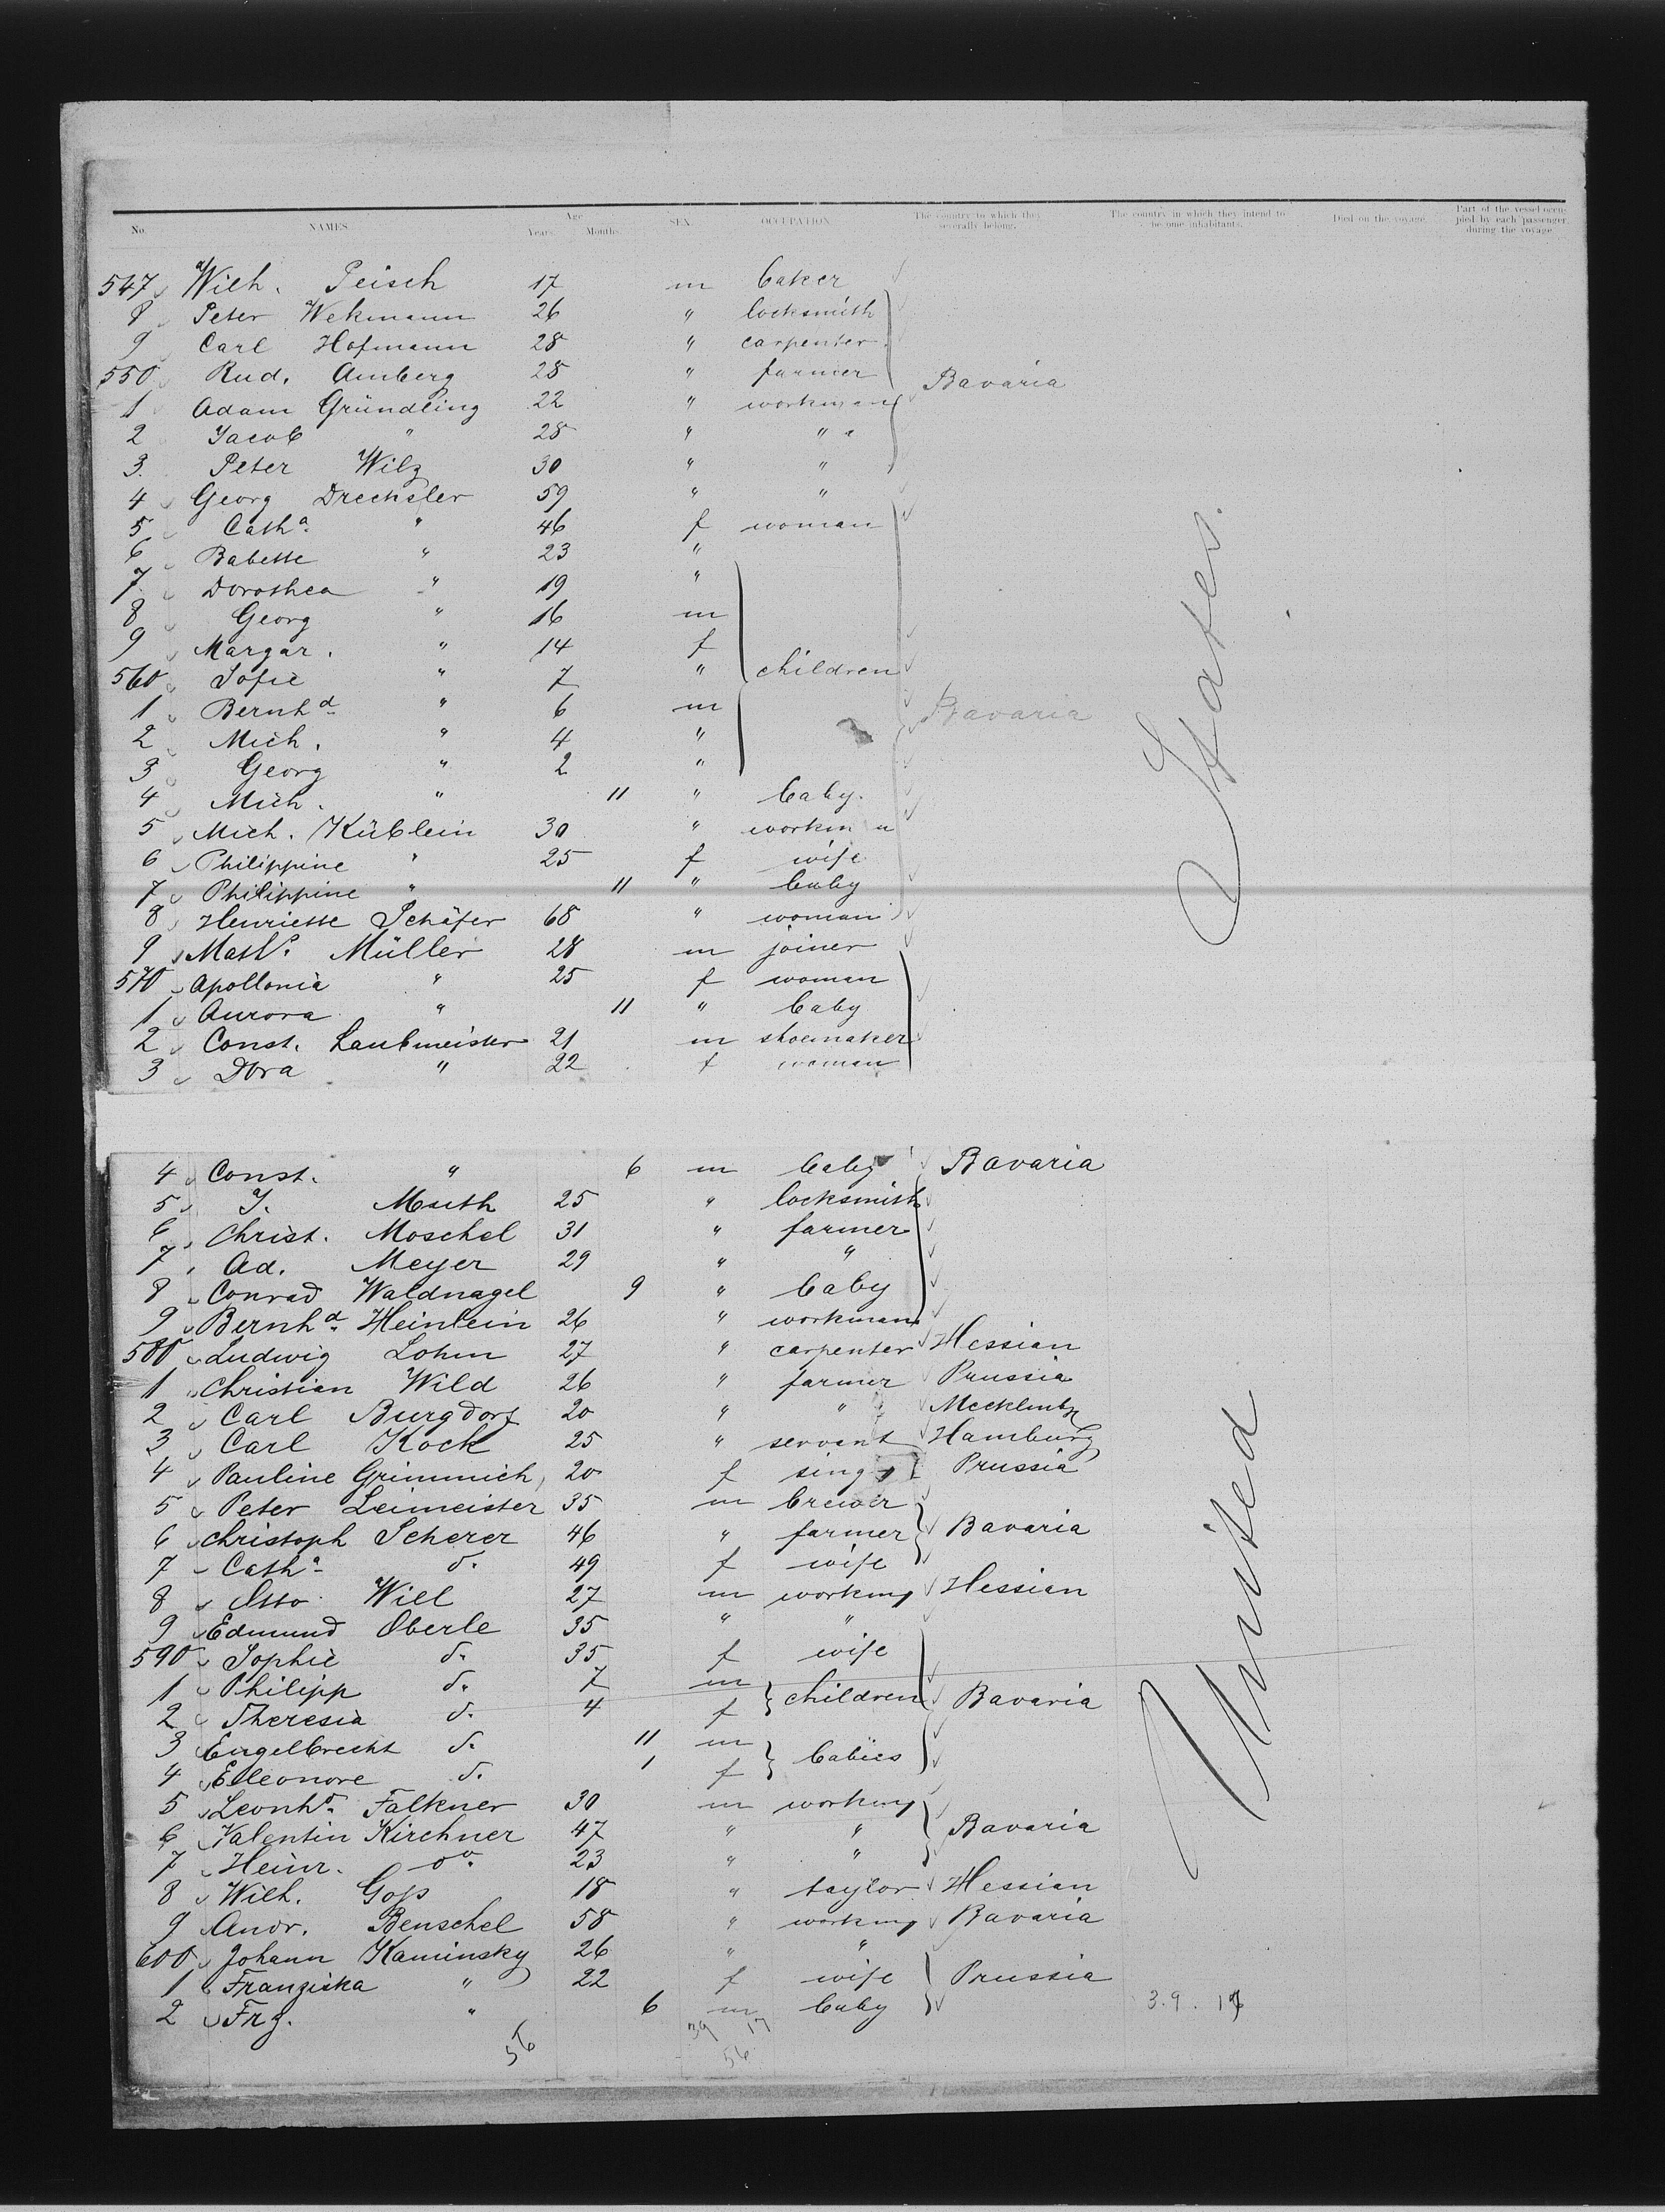 No. NAMES Age Years. Months. SEX. OCCUPATION The country to which they severally belong. The country in which they intend to become inhabitants. Died on the voyage. Part of the vessel occupied by each passenger during the voyage.
547 Wilh. Peisch 17 m baker
8 Peter Wekmann 26 " locksmith
9 Carl Hofmann 28 " carpenter
550 Rud. Amberg 28 " farmer Bavaria
1 Adam Gründling 22 " workman
2 Jacob " 28 " "
3 Peter Wilz 30 " "
4 Georg Drechsler 59 " "
5 Catha " 46 f woman
6 Babette " 23 "
7 Dorothea " 19 "
8 Georg " 16 m
9 Margar. " 14 f
560 Sofie " 7 " children
1 Bernhd " 6 m Bavaria
2 Mich. " 4 "
3 Georg " 2 "
4 Mich. " 11 " baby.
5 Mich. Küblein 30 "
6 Philippine " 25 f wife
7 Philippine " 11 " baby
8 Henriette Schäfer 68 " woman
9 Müller 28 m joiner
570 Apollonia " 25 f woman
1 Aurora " 11 " baby
2 Const. Laubmeister 21 m shoemaker
3 Dora " 22 f woman
4 Const. " 6 m baby Bavaria
5 J. Muth 25 " locksmith
6 Christ. Moschel 31 " farmer
7 Ad. Meyer 29 " "
8 Conrad Waldnagel 9 " baby
9 Bernhd Heinlein 26 " workman
580 Ludwig Lohm 27 " carpenter Hessian
1 Christian Wild 26 " farmer Prussia
2 Carl Burgdorf 20 " " Mecklenbg
3 Carl Kock 25 " servant Hamburg
4 Pauline Grimmich 20 f Prussia
5 Peter Leimeister 35 m brewer
6 Christoph Scherer 46 " farmer Bavaria
7 Catha do. 49 f wife
8 Otto Will 27 m workmg Hessian
9 Edmund Oberle 35 " "
590 Sophie do. 35 f wife
1 Philipp do. 7 m children Bavaria
2 Theresia do. 4 f
3 Engelbrecht do. 11 m babies
4 Eleonore do. 1 f
5 Leonhd. Falkner 30 m workmg
6 Valentin Kirchner 47 " " Bavaria
7 Heinr. do. 23 " "
8 Wilh. Goss 18 " taylor Hessian
9 Andr. Benschel 58 " workmg Bavaria
600 Johann Kaminsky 26 " "
1 Franziska " 22 f wife Prussia
2 Frz. " 6 m baby
56 39 17
56
United States.